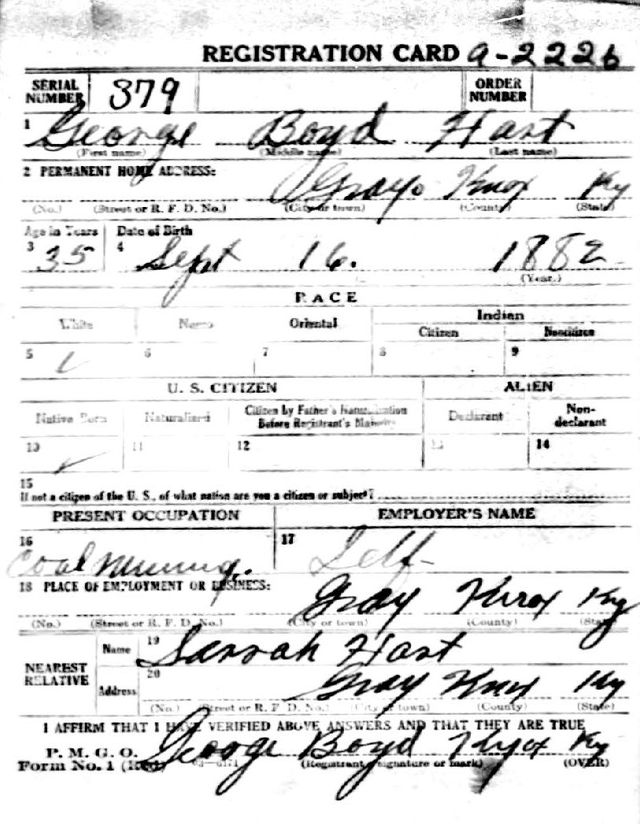 REGISTRATION CARD a-2226
SERIAL NUMBER 379 ORDER NUMBER
1 George Boyd Hart
(First name) (Middle name) (Last name)
2 PERMANENT HOME ADDRESS:
Grays Knox Ky
(No.) (Street or R. F. D. No.) (City or town) (County) (State)
Age in Years Date of Birth
3 35 4 Sept 16. 1882
(Year.)
RACE
White Negro Oriental Indian
Citizen Noncitizen
5 ✓ 6 7 8 9
U. S. CITIZEN ALIEN
Native Born Naturalized Citizen by Father's Naturalization Before Registrant's Majority Declarant Non-declarant
10 ✓ 11 12 13 14
15
If not a citizen of the U. S., of what nation are you a citizen or subject?
PRESENT OCCUPATION EMPLOYER'S NAME
16 Coal Mining. 17 Self
18 PLACE OF EMPLOYMENT OR BUSINESS:
Gray Knox Ky
(No.) (Street or R. F. D. No.) (City or town) (County) (State)
NEAREST RELATIVE Name 19 Sarrah Hart
Address 20 Gray Knox Ky
(No.) (Street or R. F. D. No.) (City or town) (County) (State)
I AFFIRM THAT I HAVE VERIFIED ABOVE ANSWERS AND THAT THEY ARE TRUE
P. M. G. O.
Form No. 1 George Boyd Knox Ky
(Registrant signature or mark) (OVER)